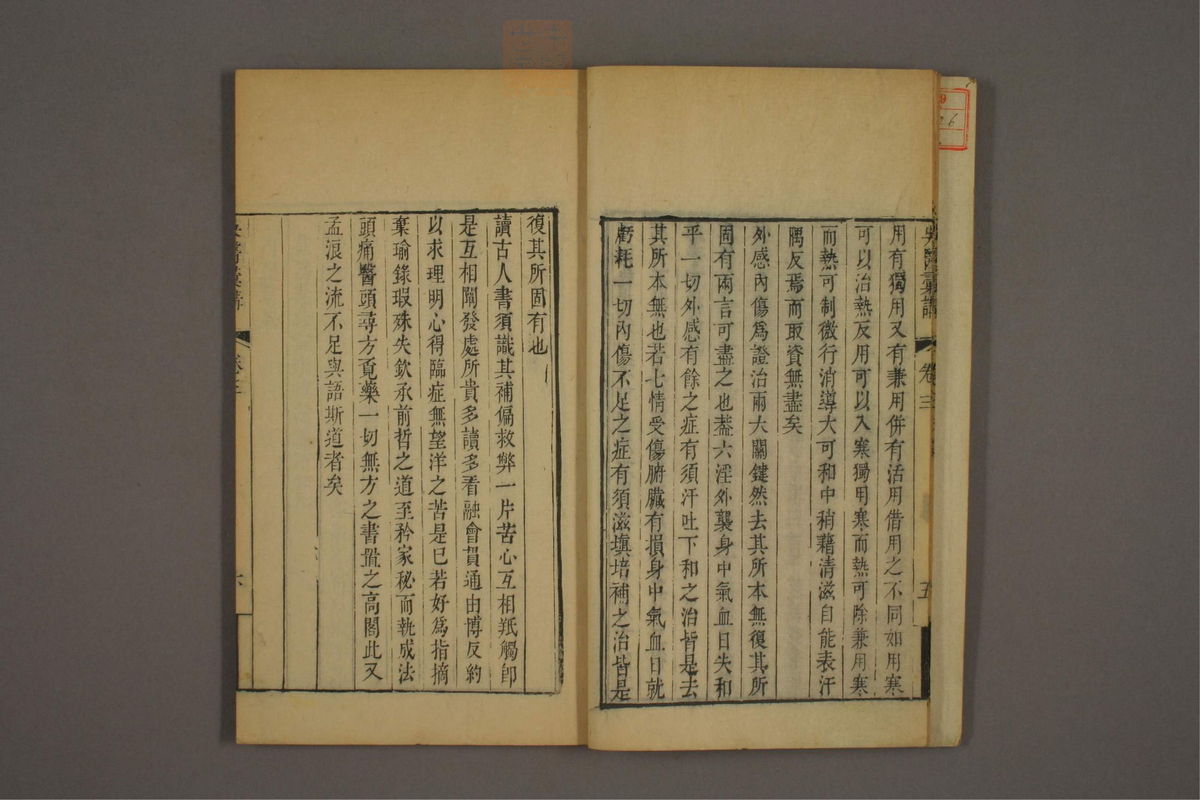 吳醫彙講
卷三
五
用有獨用又有兼用併有活用借用之不同如用寒
可以治熱反用可以入寒獨用寒而熱可除兼用寒
而熱可制微行消導大可和中稍藉清滋自能表汗
隅反焉而取資無盡矣
外感內傷爲證治兩大關鍵然去其所本無復其所
固有兩言可盡之也葢六淫外襲身中氣血日失和
平一切外感有餘之症有須汗吐下和之治皆是去
其所本無也若七情受傷腑臟有損身中氣血日就
虧耗一切內傷不足之症有須滋塡培補之治皆是
復其所固有也
讀古人書須識其補偏救弊一片苦心互相羝觸卽
是互相闡發處所貴多讀多看融會貫通由博反約
以求理明心得臨症無望洋之苦是已若好爲指摘
棄瑜錄瑕殊失欽承前哲之道至矜家秘而執成法
頭痛醫頭尋方覓藥一切無方之書置之高閣此又
孟浪之流不足與語斯道者矣
吳醫彙講
卷三
六